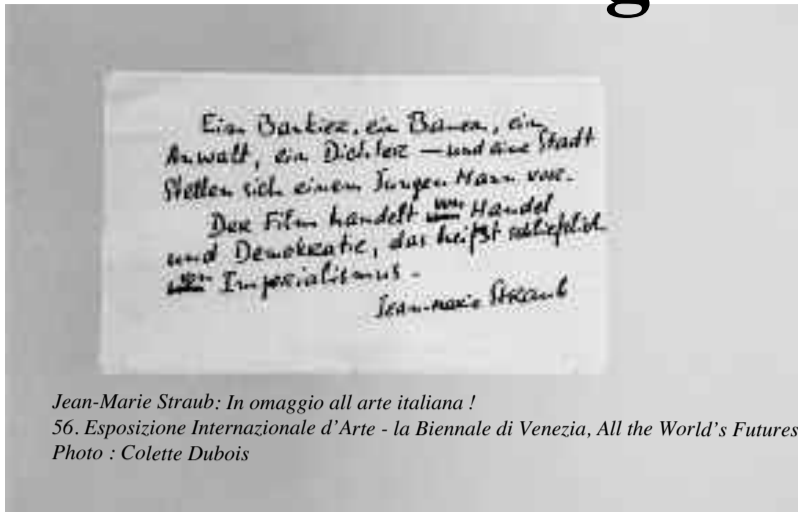 Ein Bankier, ein Bauer, ein
Anwalt, ein Dichter — und eine Stadt
stellen sich einem Jungen Mann vor.
Der Film handelt von Handel
und Demokratie, das heißt schließlich
von Imperialismus.
Jean-Marie Straub
Jean-Marie Straub: In omaggio all arte italiana !
56. Esposizione Internazionale d'Arte - la Biennale di Venezia, All the World's Futures
Photo : Colette Dubois